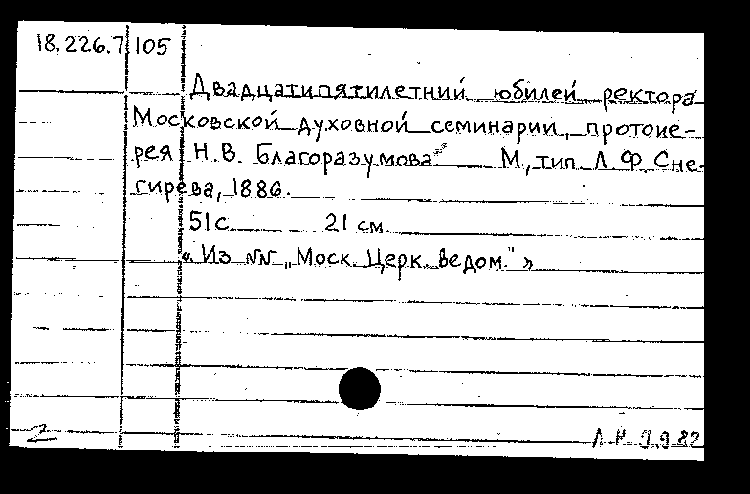 18.226.7 105
Двадцатипятилетний юбилей ректора
Московской духовной семинарии, протоие-
рея Н.В. Благоразумова М, тип Л.Ф. Сне-
гирева, 1886.
51с 21 см
« Из №№ „Моск. Церк. ведом." »
2